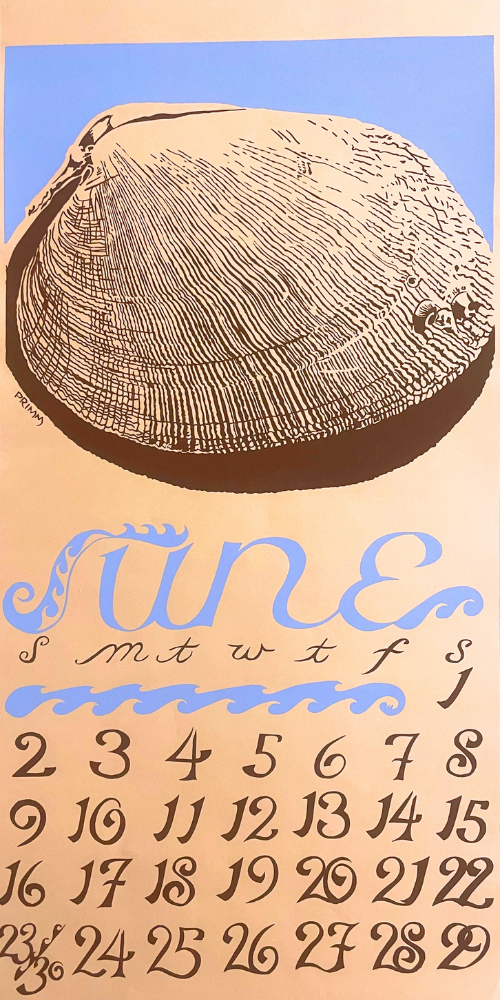 PRIMM
JUNE
S m t w t f S
1
2 3 4 5 6 7 8
9 10 11 12 13 14 15
16 17 18 19 20 21 22
23/30 24 25 26 27 28 29